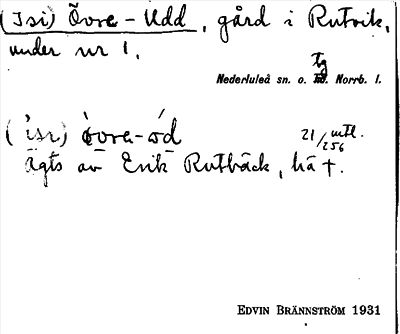 (Isi) Övre-Udd, gård i Rutvik,
under nr 1.
tg
Nederluleå sn. o. hd. Norrb. l.
(isi) òvra-òd 21/256 mtl.
Ägts av Erik Rutbäck, hä †.
EDVIN BRÄNNSTRÖM 1931